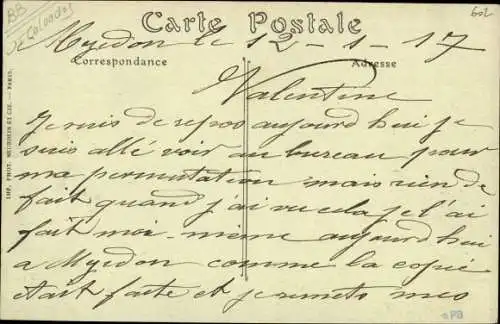 BB
DF Calvados
602
Carte Postale
Myedon le 12-1-17
Correspondance
Adresse
Valentine
Je suis de repos aujourd hui je
suis allé voir au bureau pour
ma permutation mais rien de
fait quand j'ai vu cela je l'ai
fait moi-même aujourd'hui
a Myedon comme la copie
était faite et je remets mes
IMP. PHOT. NEURDEIN ET CIE. — PARIS.
PB